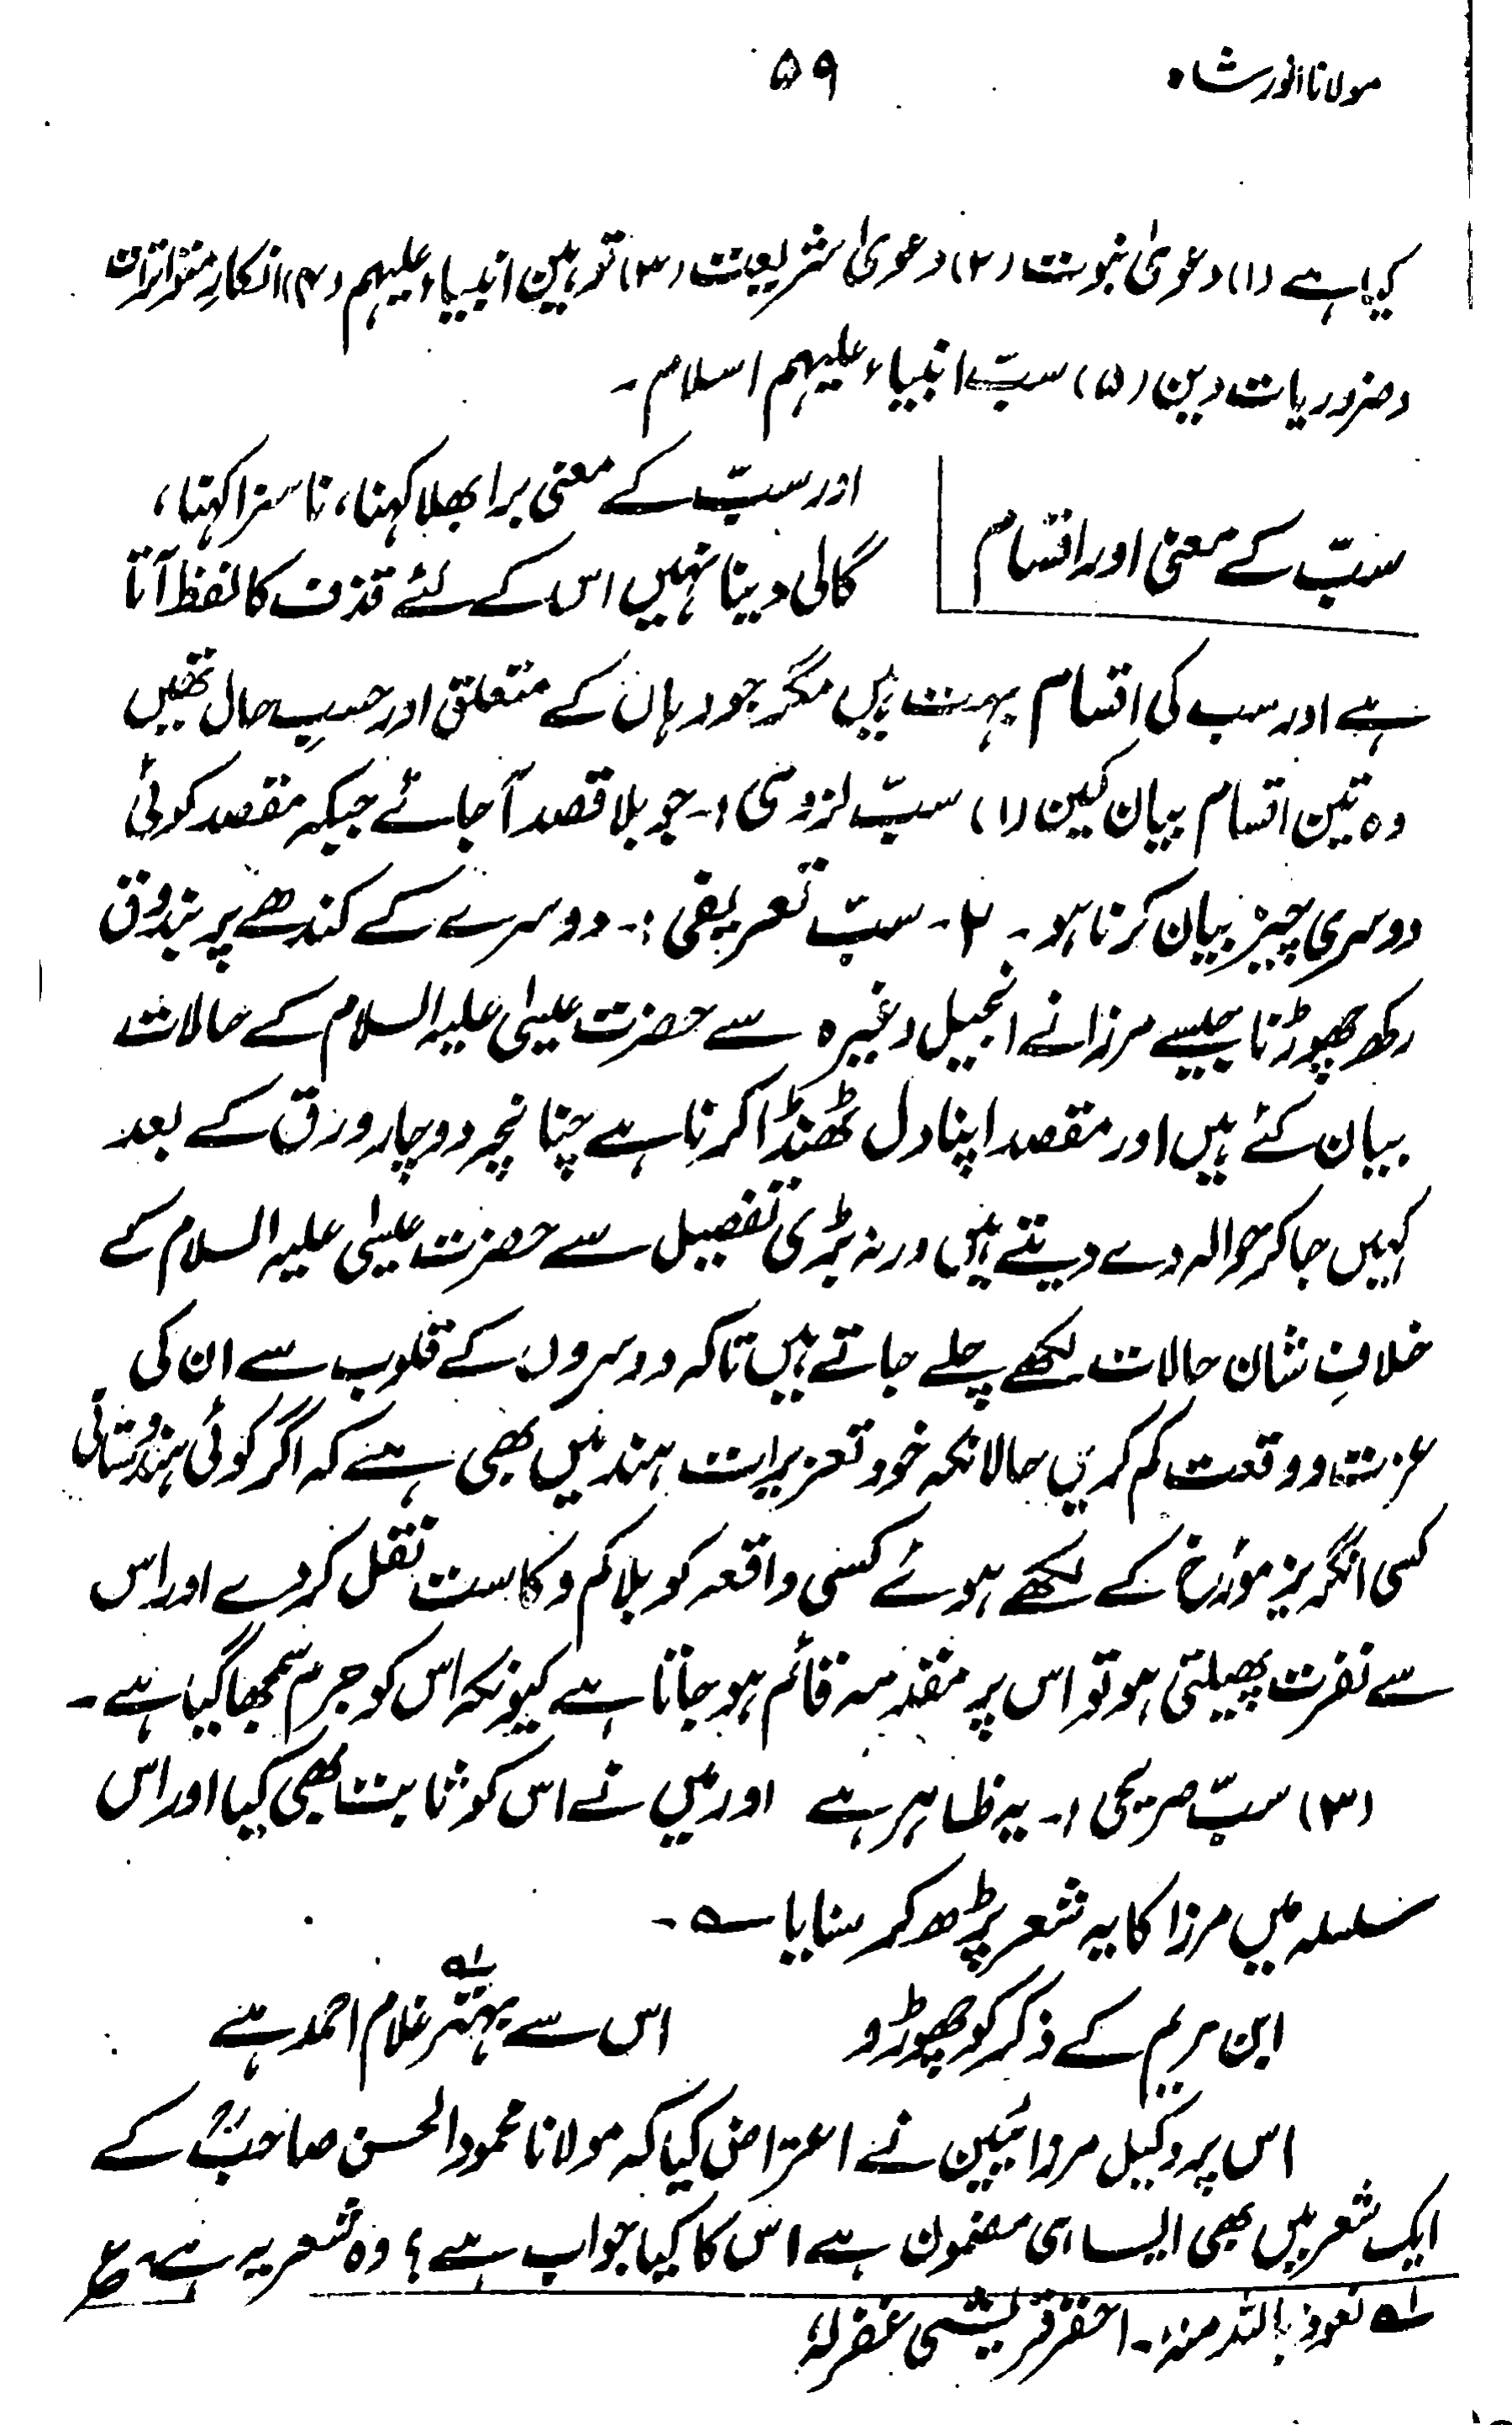 مولانا انور شاہ
۵۹
کیا ہے (۱) دعویٰ نبوت (۲) دعویٰ شریعت (۳) توہین انبیاء علیہم (۴) انکارِ متواترات
و ضروریات دین (۵) سبّ انبیاء علیہم اسلام۔
سبّ کے معنی اور اقسام
اور سبّ کے معنی برا بھلا کہنا، نا سزا کہنا،
گالی دینا نہیں اس کے لئے قذف کا لفظ آتا
ہے اور سب کی اقسام بہت ہیں مگر جو وہاں کے متعلق اور حسبِ حال تھیں
وہ تین اقسام بیان کیں (۱) سبّ لزومی :۔ جو بلا قصد آجائے جبکہ مقصد کوئی
دوسری چیز بیان کرنا ہو۔ ۲۔ سبّ تعریفی :۔ دوسرے کے کندھے پر بندوق
رکھ چھوڑنا جیسے مرزا نے انجیل وغیرہ سے حضرت عیسیٰ علیہ السلام کے حالات
بیان کئے ہیں اور مقصد اپنا دل ٹھنڈا کرنا ہے چنانچہ دو چار ورق کے بعد
کہیں جا کر حوالہ دے دیتے ہیں ورنہ بڑی تفصیل سے حضرت عیسیٰ علیہ السلام کے
خلافِ شان حالات لکھے چلے جاتے ہیں تاکہ دوسروں کے قلوب سے ان کی
عزت و وقعت کم کریں حالانکہ خود تعزیرات ہند میں بھی ہے کہ اگر کوئی ہندوستانی
کسی انگریز مؤرخ کے لکھے ہوئے کسی واقعہ کو بلا کم و کاست نقل کردے اور اس
سے نفرت پھیلتی ہو تو اس پر مقدمہ قائم ہو جاتا ہے کیونکہ اس کو جرم سمجھا گیا ہے۔
(۳) سبّ صریحی :۔ یہ ظاہر ہے اور میں نے اس کو ثابت بھی کیا اور اس
سلسلہ میں مرزا کا یہ شعر پڑھ کر سنایا ؎۔
ابن مریم کے ذکر کو چھوڑو اس سے بہتر غلام احمد ہے ؎۱
اس پر وکیل مرزائیین نے اعتراض کیا کہ مولانا محمود الحسن صاحبؒ کے
ایک شعر میں بھی ایسا ہی مضمون ہے اس کا کیا جواب ہے؟ وہ شعر یہ ہے۔ ؏
؎۱ نعوذ باللہ منہ۔ احقر قریشی غفرلہٗ